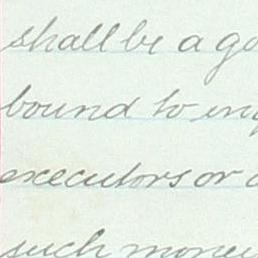 shall be a go
bound to inq
executors or a
such money